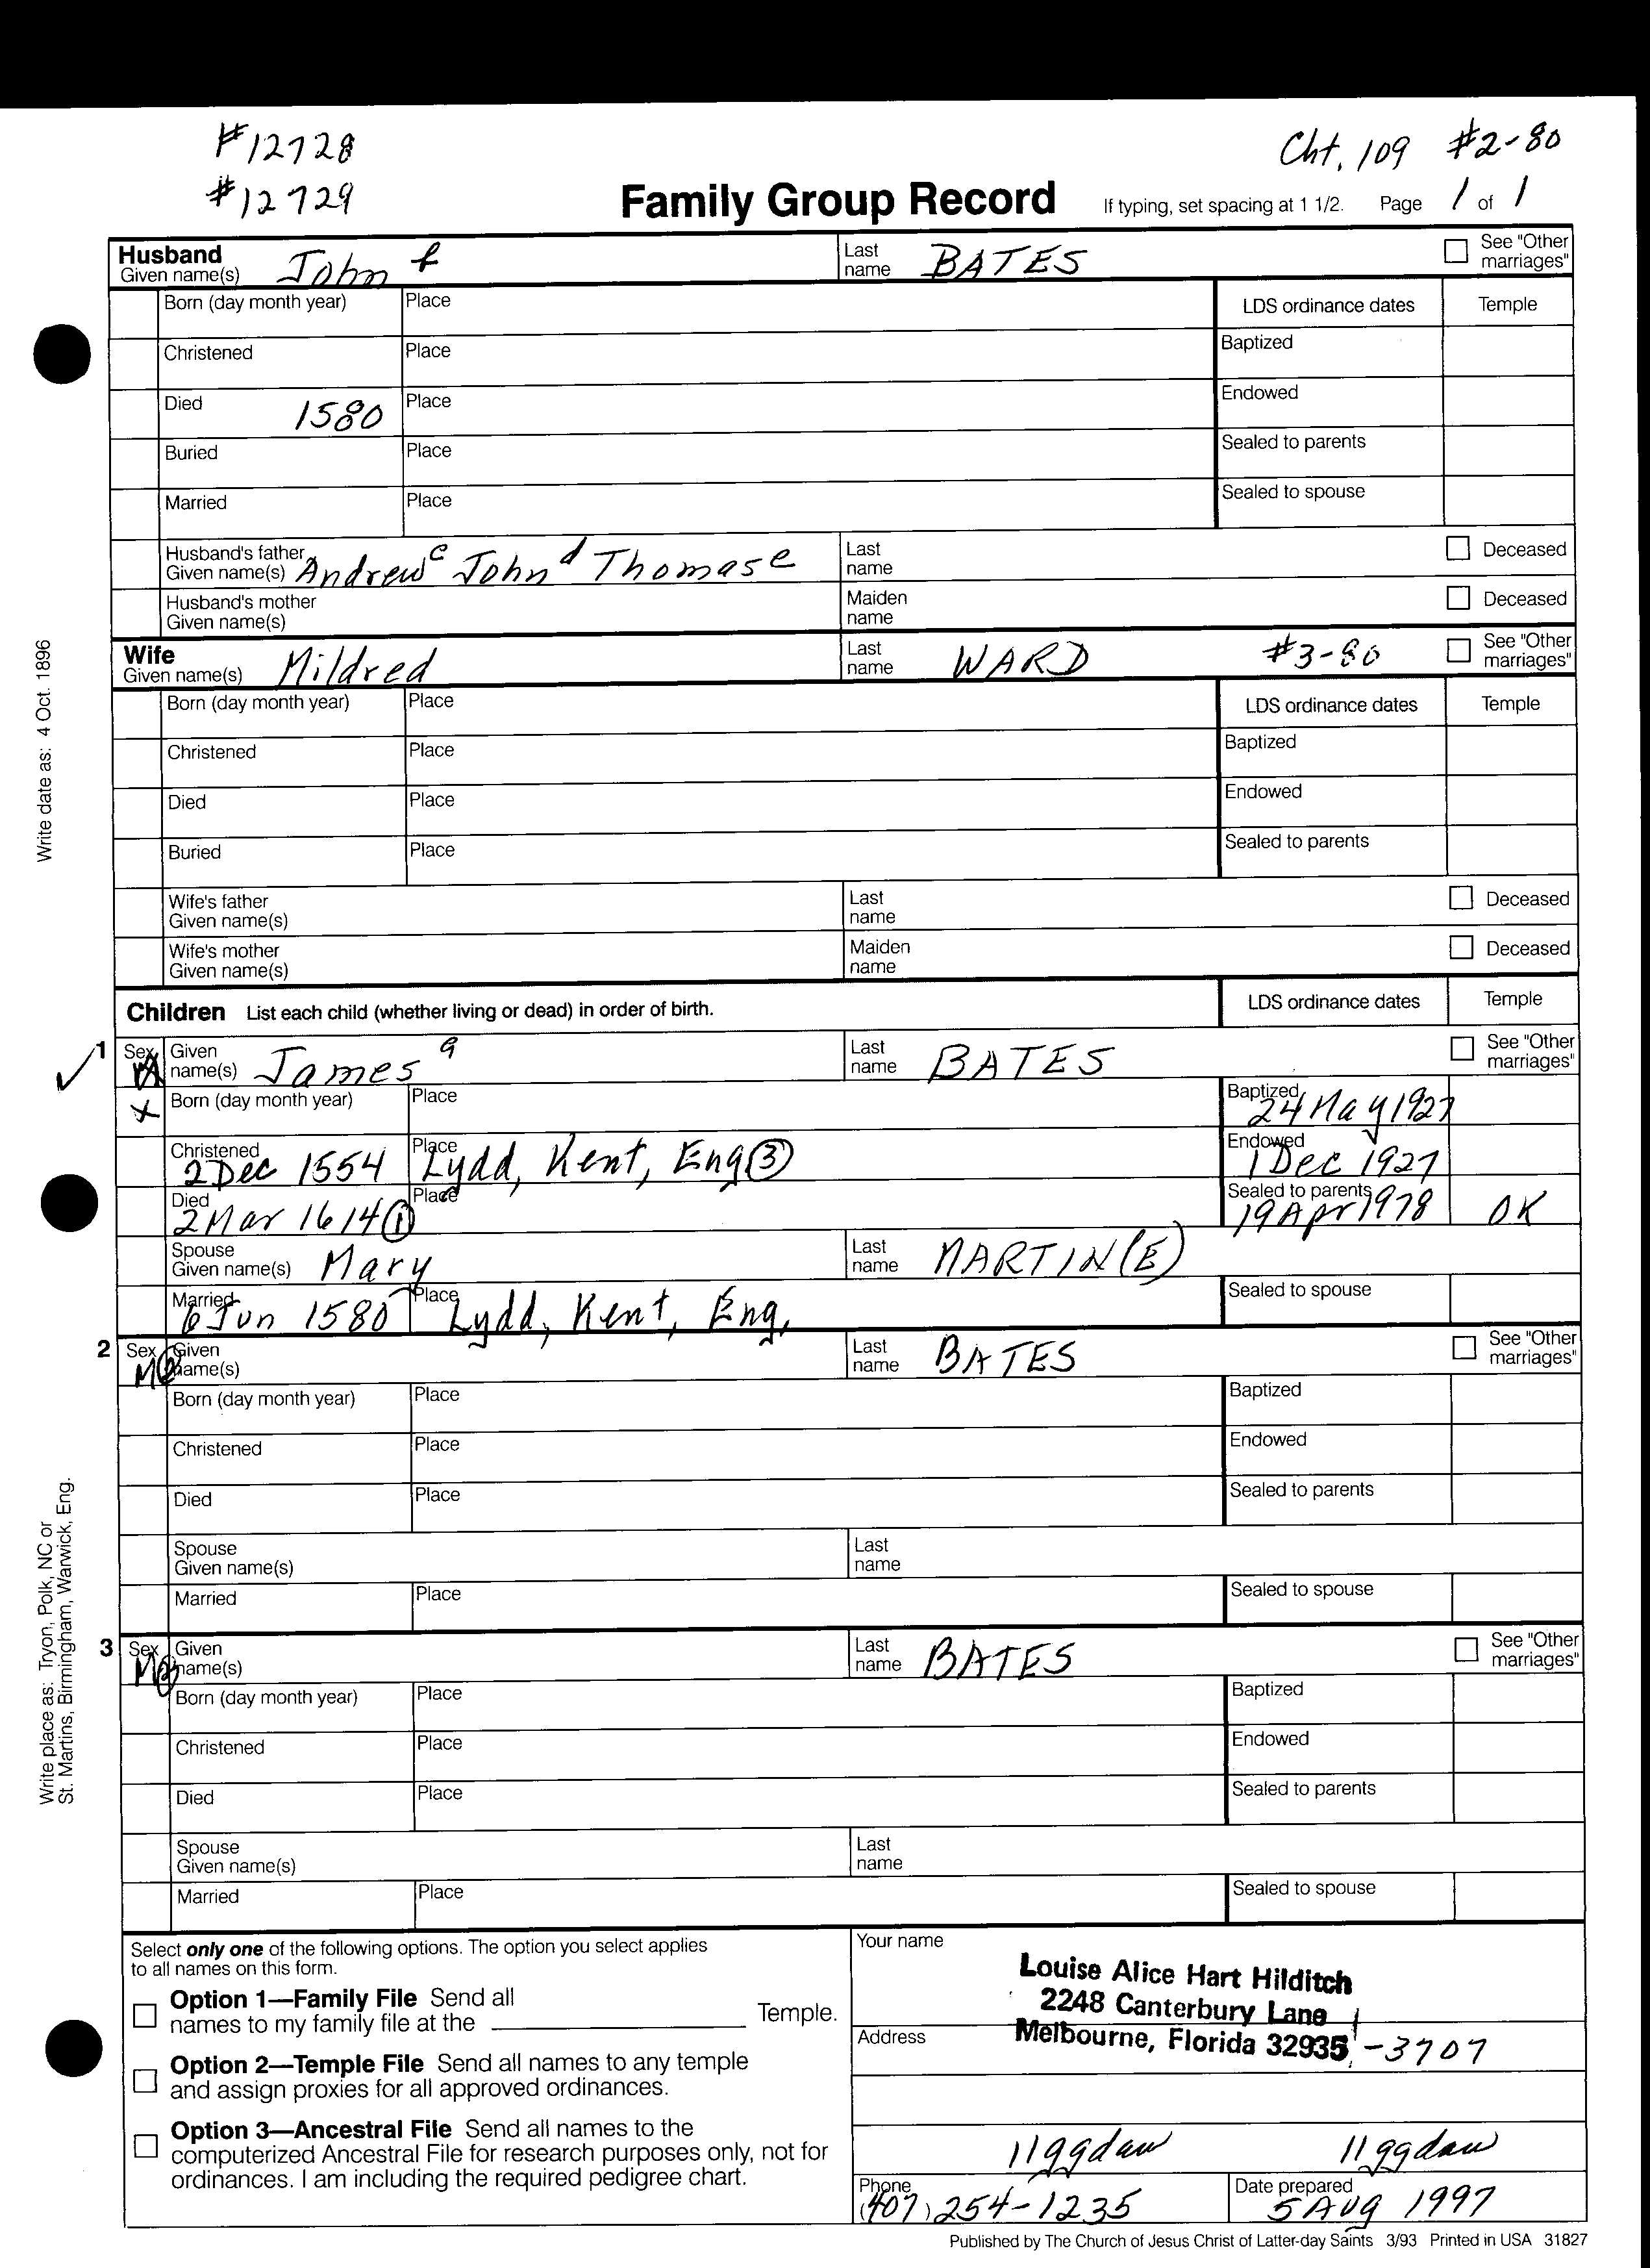 #12728
Cht. 109 #2-80
#12729
Family Group Record If typing, set spacing at 1 1/2. Page 1 of 1
Husband
Given name(s) John f Last name BATES See "Other marriages"
Born (day month year) Place LDS ordinance dates Temple
Christened Place Baptized
Died 1580 Place Endowed
Buried Place Sealed to parents
Married Place Sealed to spouse
Husband's father Given name(s) Andrew c John d Thomas e Last name Deceased
Husband's mother Given name(s) Maiden name Deceased
Wife
Given name(s) Mildred Last name WARD #3-80 See "Other marriages"
Born (day month year) Place LDS ordinance dates Temple
Christened Place Baptized
Died Place Endowed
Buried Place Sealed to parents
Wife's father Given name(s) Last name Deceased
Wife's mother Given name(s) Maiden name Deceased
Children List each child (whether living or dead) in order of birth. LDS ordinance dates Temple
1 Sex Given name(s) James a Last name BATES See "Other marriages"
x Born (day month year) Place Baptized 24 May 1927
Christened 2 Dec 1554 Place Lydd, Kent, Eng ③ Endowed 1 Dec 1927
Died 2 Mar 1614 ① Place Sealed to parents 19 Apr 1978 OK
Spouse Given name(s) Mary Last name MARTIN(E)
Married 6 Jun 1580 Place Lydd, Kent, Eng, Sealed to spouse
2 Sex M Given name(s) Last name BATES See "Other marriages"
Born (day month year) Place Baptized
Christened Place Endowed
Died Place Sealed to parents
Spouse Given name(s) Last name
Married Place Sealed to spouse
3 Sex M Given name(s) Last name BATES See "Other marriages"
Born (day month year) Place Baptized
Christened Place Endowed
Died Place Sealed to parents
Spouse Given name(s) Last name
Married Place Sealed to spouse
Write date as: 4 Oct. 1896
Write place as: Tryon, Polk, NC or
St. Martins, Birmingham, Warwick, Eng.
Select only one of the following options. The option you select applies
to all names on this form.
Option 1—Family File Send all
names to my family file at the Temple.
Option 2—Temple File Send all names to any temple
and assign proxies for all approved ordinances.
Option 3—Ancestral File Send all names to the
computerized Ancestral File for research purposes only, not for
ordinances. I am including the required pedigree chart.
Your name
Louise Alice Hart Hilditch
2248 Canterbury Lane
Address Melbourne, Florida 32935-3707
Phone (407) 254-1235 Date prepared 5 Aug 1997
Published by The Church of Jesus Christ of Latter-day Saints 3/93 Printed in USA 31827